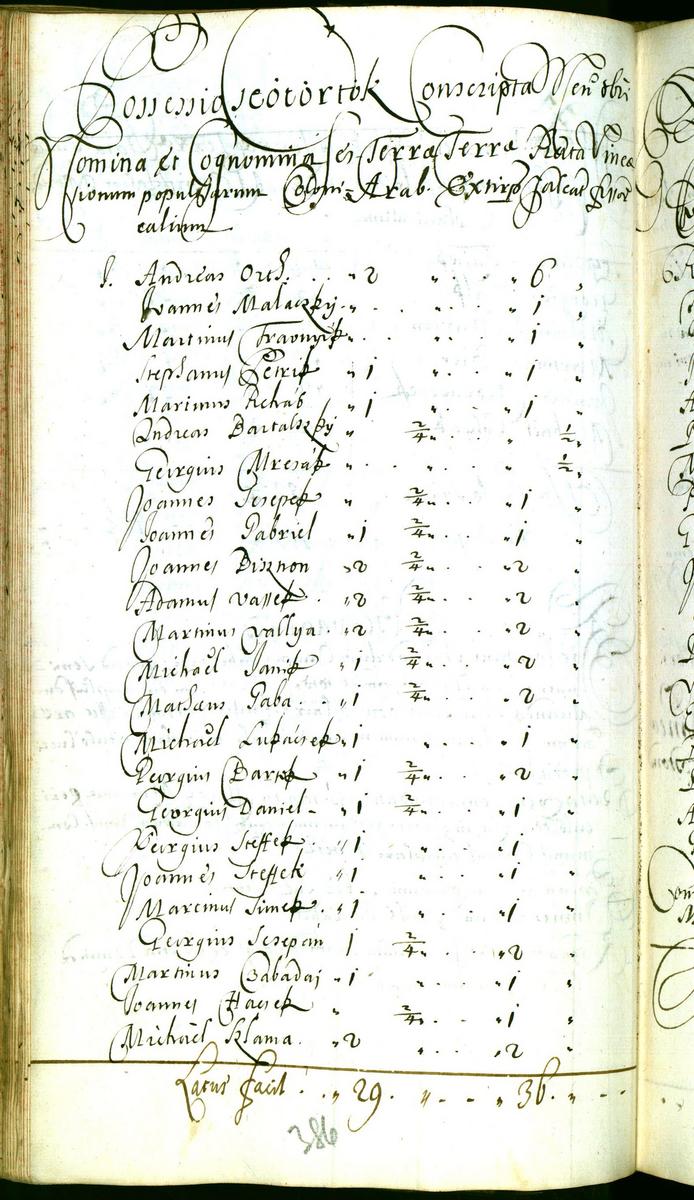 Possessio Conscripta
Nomina et Cognomina Ses Terræ Terræ Prata Vineæ
sionum Coloni Arab. Extirp Falcat
calium
1. Andreas Orth. . . „ 2 „ . . . „ 6 „
Joannes Malaczky . „ . . . „ 1 „
Martinus Travnyik „ . . . „ 1 „
Stephanus Petrik „ 1 „ . . „ 1 „
Martinus Rehás „ 1 „ . . „ 1 „
Andreas Bartalszky „ 2/4 „ . . „ 1/2 „
Georgius Mresák „ . . „ . . „ 1/2 „
Joannes Sesepek „ 2/4 „ . . „ 1 „
Joannes Gabriel „ 1 2/4 „ . . „ 1 „
Joannes Bisznon „ 2 2/4 „ . . „ 2 „
Adamus Vassek . „ 2 2/4 „ . . „ 2 „
Martinus Vallya . „ 2 2/4 „ . . „ 2 „
Michaël Janik „ 1 2/4 „ . . „ 2 „
Mathæus Gaba . „ 1 2/4 „ . . „ 2 „
Michaël Lukácsek „ 1 „ . . „ 1 „
Georgius Bartek „ 1 2/4 „ . . „ 2 „
Georgius Daniel „ 1 2/4 „ . . „ 1 „
Georgius Steffek „ 1 „ . . „ 1 „
Joannes Steffek „ 1 „ . . „ 1 „
Martinus Simek „ 1 „ . . „ 1 „
Georgius Scsepán 1 2/4 „ . . „ 2 „
Martinus Czabadaj „ 1 „ . . „ 1 „
Joannes Hacsek „ 2/4 „ . . „ 1 „
Michaël Klama . „ 2 „ . . „ 2 „
Latus facit . . „ 29 . „ . - . „ 36 . „ . - -
386